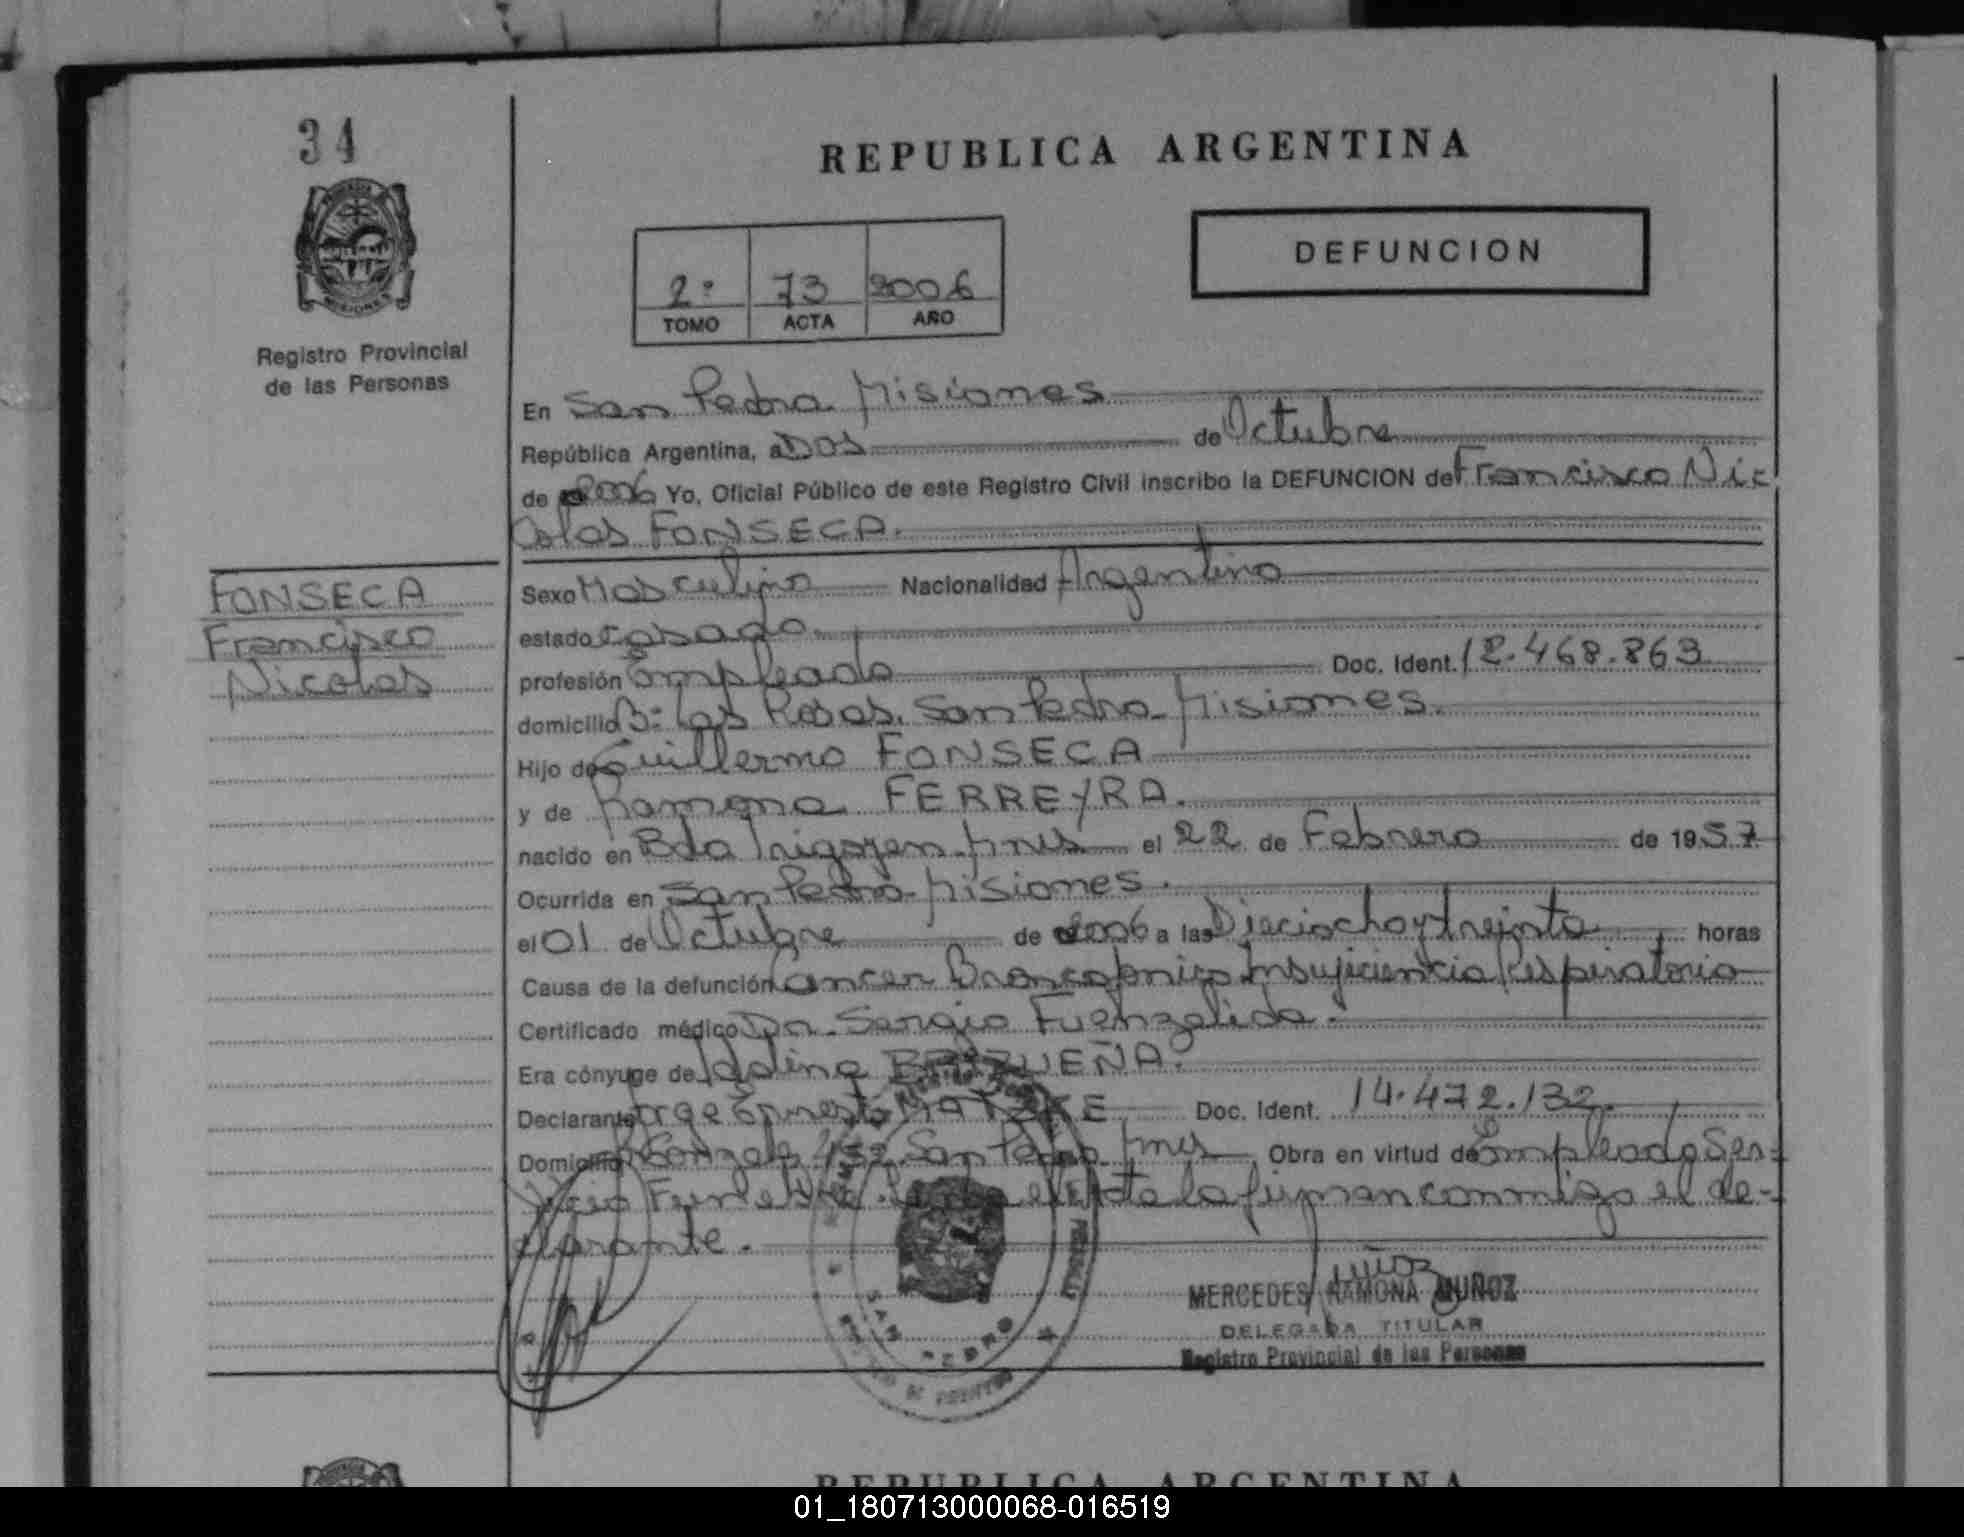 34
REPUBLICA ARGENTINA
DEFUNCION
2º 73 2006
TOMO ACTA AÑO
Registro Provincial
de las Personas
En San Pedro Misiones
República Argentina, a Dos de Octubre
de 2006 Yo, Oficial Público de este Registro Civil inscribo la DEFUNCION de Francisco Nic
olas FONSECA.
FONSECA
Francisco
Nicolas
Sexo Masculino Nacionalidad Argentino
estado casado.
profesión Empleado Doc. Ident. 12.468.863
domicilio Bº Las Rosas. San Pedro Misiones.
Hijo de Guillermo FONSECA
y de Ramona FERREYRA.
nacido en Bdo Irigoyen Mnes el 22 de Febrero de 1957
Ocurrida en San Pedro Misiones.
el 01 de Octubre de 2006 a las Dieciocho y treinta horas
Causa de la defunción Cancer Insuficiencia Respiratoria
Certificado médico Dr. Sergio Fuenzalida.
Era cónyuge de Idalina
Declarante Jorge Ernesto Doc. Ident. 14.472.132.
Domicilio 452 San Pedro Mnes Obra en virtud de Empleado Ser-
vicio Funebre. la firman conmigo el de-
clarante.
SAN PEDRO
MERCEDES RAMONA MUÑOZ
DELEGADA TITULAR
Registro Provincial de las Personas
REPUBLICA ARGENTINA
01_180713000068-016519